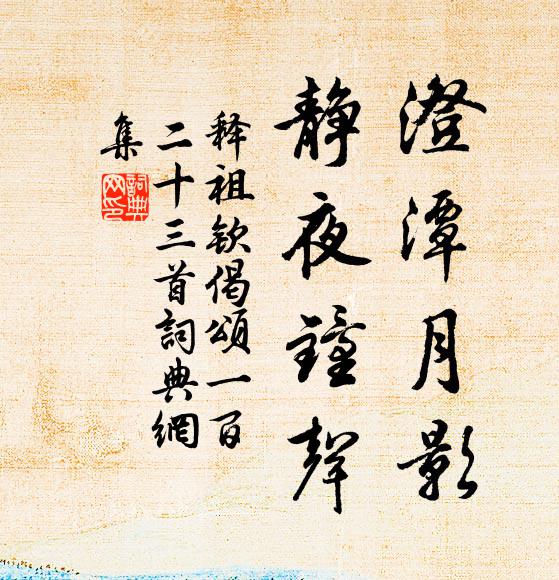 澄潭月影
静夜鐘聲
释祖钦偈頌一百
二十三首詞典網
集
詞典
网印